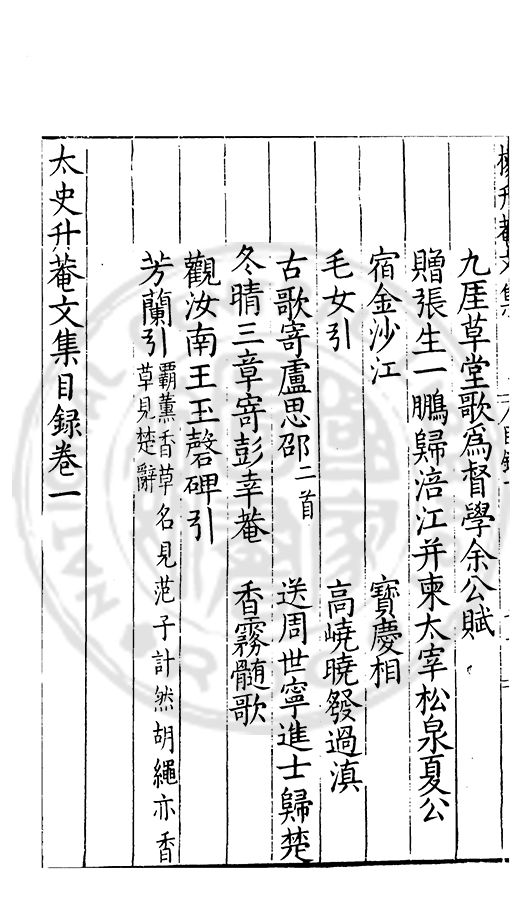 九厓草堂歌爲督學余公賦
贈張生一鵬歸涪江并柬太宰松泉夏公
宿金沙江 寳慶相
毛女引 高嶢曉發過滇
古歌寄盧思邵二首 送周世寧進士歸楚
冬晴三章寄彭幸菴 香霧髓歌
觀汝南王玉磬碑引
芳蘭引 霸薰香草名見范子計然胡繩亦香
草見楚辭
太史升菴文集目録卷一